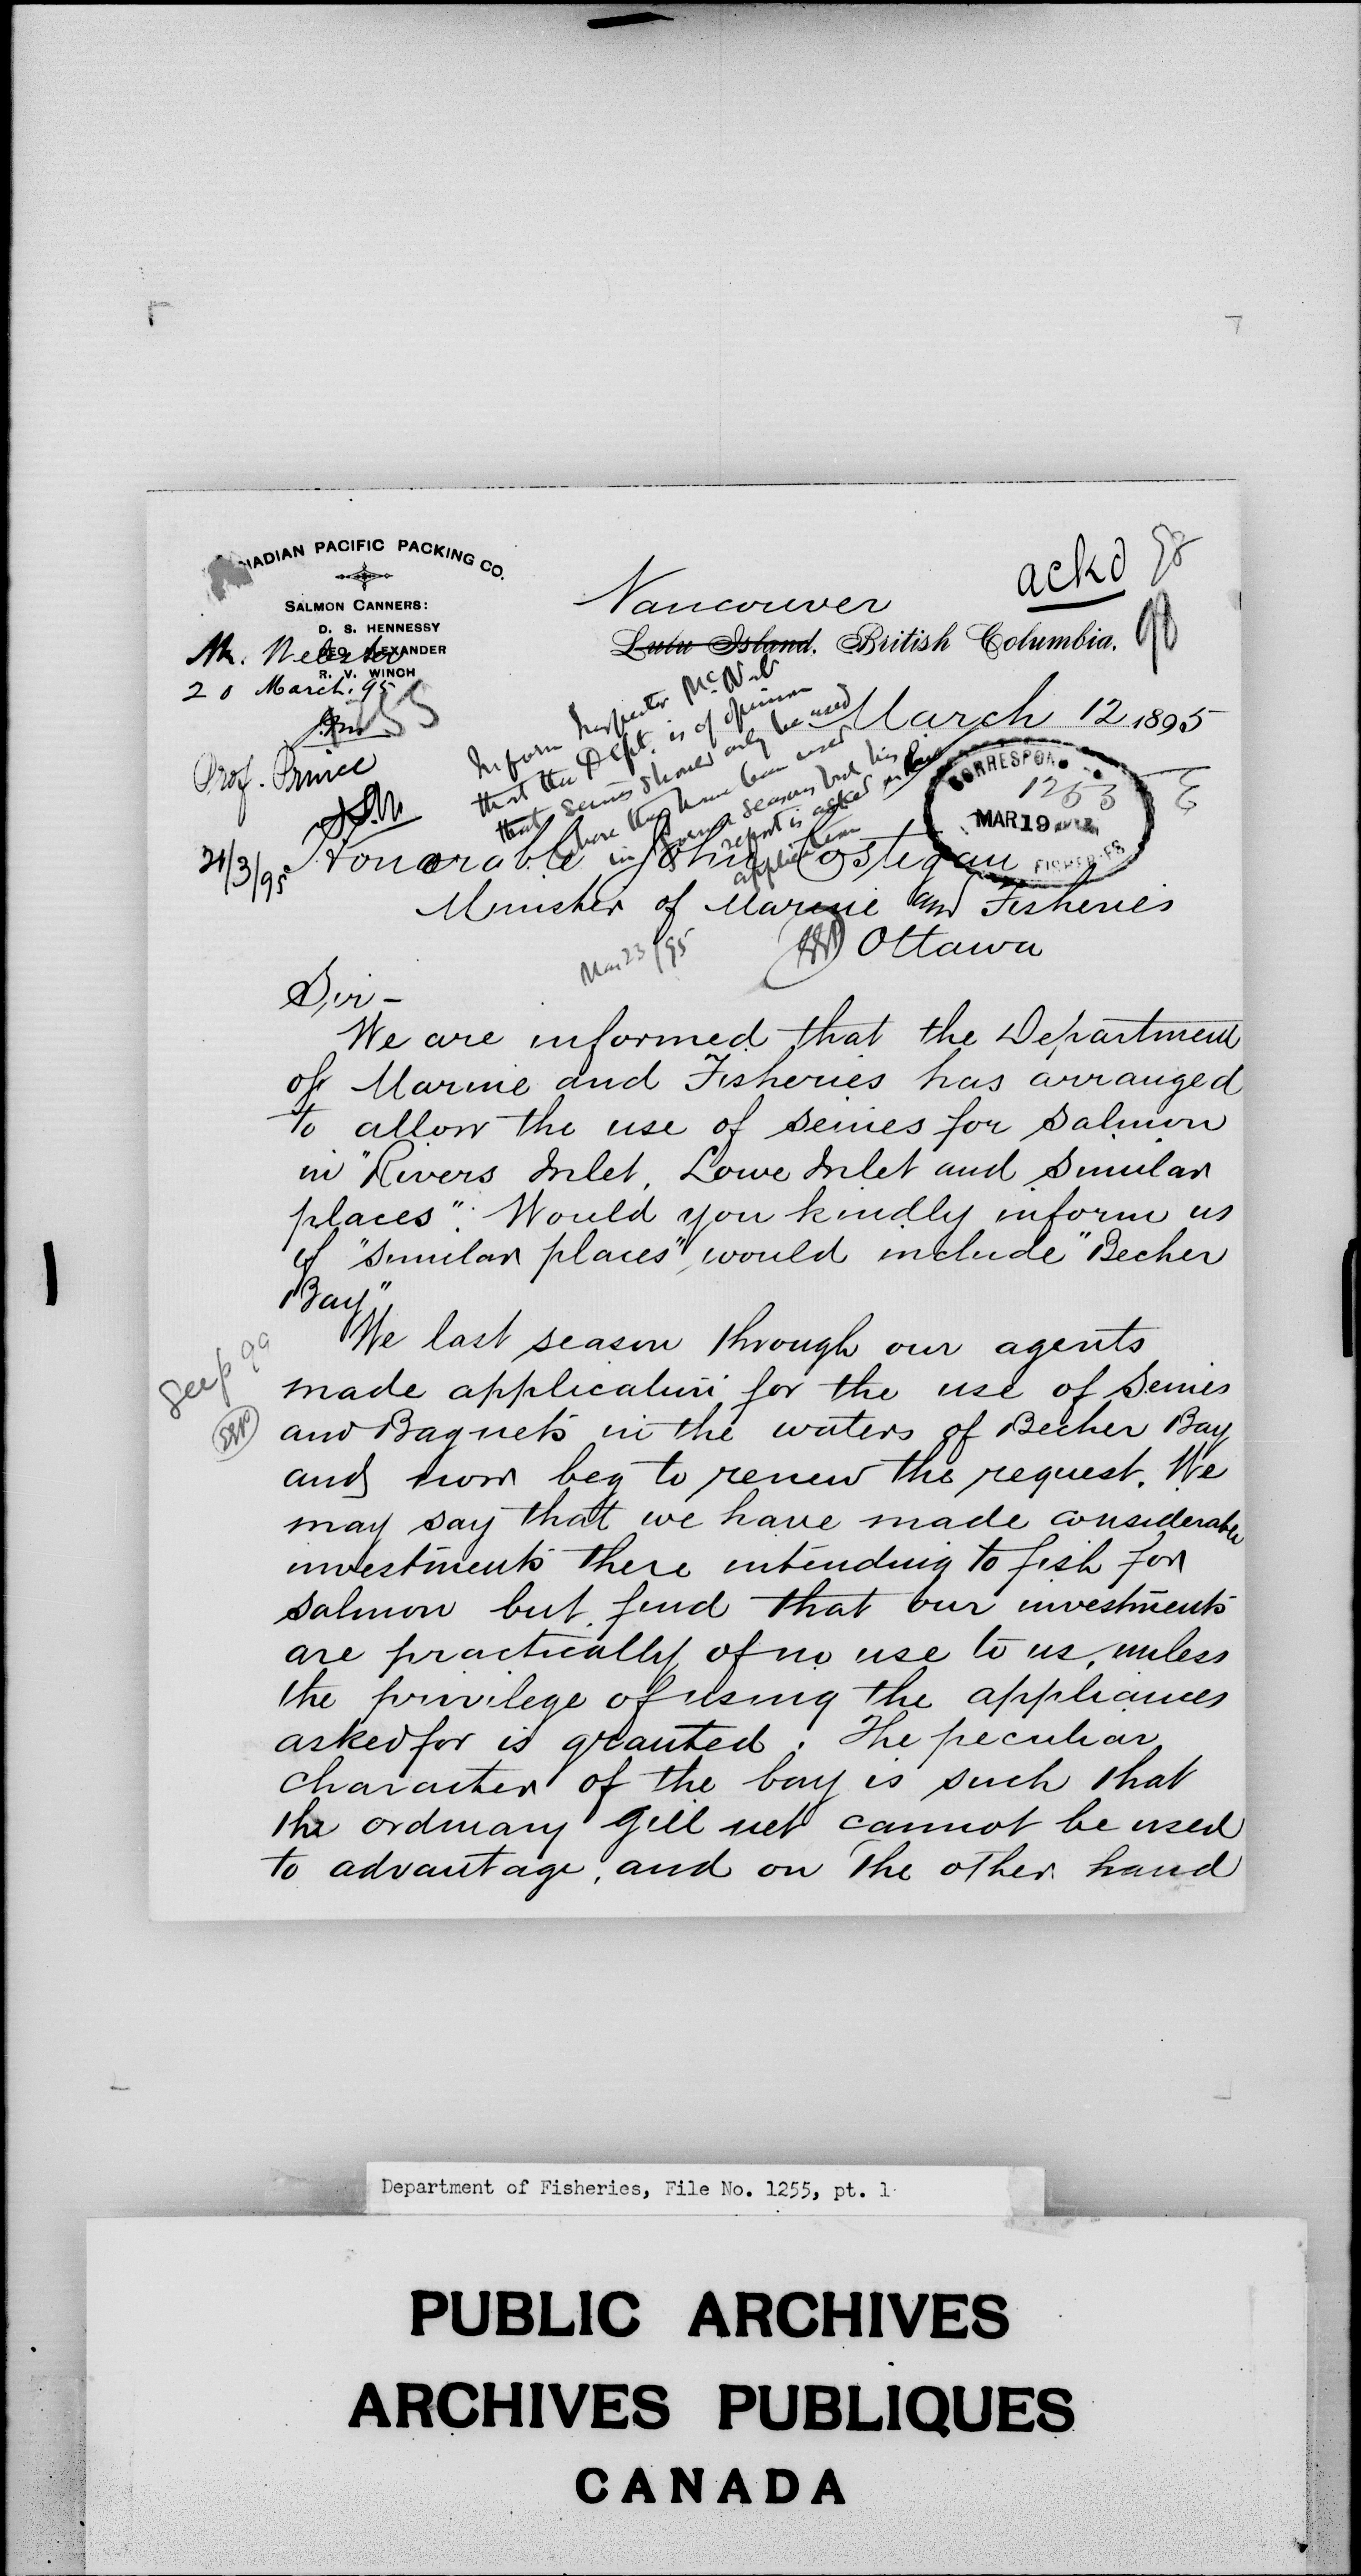 CANADIAN PACIFIC PACKING CO.
SALMON CANNERS:
D. S. HENNESSY
GEO. ALEXANDER
R. V. WINCH
Mr. Webster
20 March. 95
Prof. Prince
21/3/95
ackd 98
90
Vancouver
Lulu Island. British Columbia.
March 12 1895
Inform Inspector McNab
that the Dept. is of opinion
that seines should only be used
where they have been used
in former seasons but his
report is asked on this
application
Mar 23/95
CORRESPON
1253
MAR 19
FISHERIES
Honorable John Costigan
Minister of Marine and Fisheries
Ottawa
Sir –
We are informed that the Department
of Marine and Fisheries has arranged
to allow the use of seines for salmon
in "Rivers Inlet, Lowe Inlet and similar
places". Would you kindly inform us
if "similar places" would include "Becher
Bay"
We last season through our agents
made application for the use of Seines
and Bagnets in the waters of Becher Bay
and now beg to renew the request. We
may say that we have made considerable
investments there intending to fish for
salmon but find that our investments
are practically of no use to us, unless
the privilege of using the appliances
asked for is granted. The peculiar
character of the bay is such that
the ordinary gill net cannot be used
to advantage, and on the other hand
See p 99
Department of Fisheries, File No. 1255, pt. 1
PUBLIC ARCHIVES
ARCHIVES PUBLIQUES
CANADA